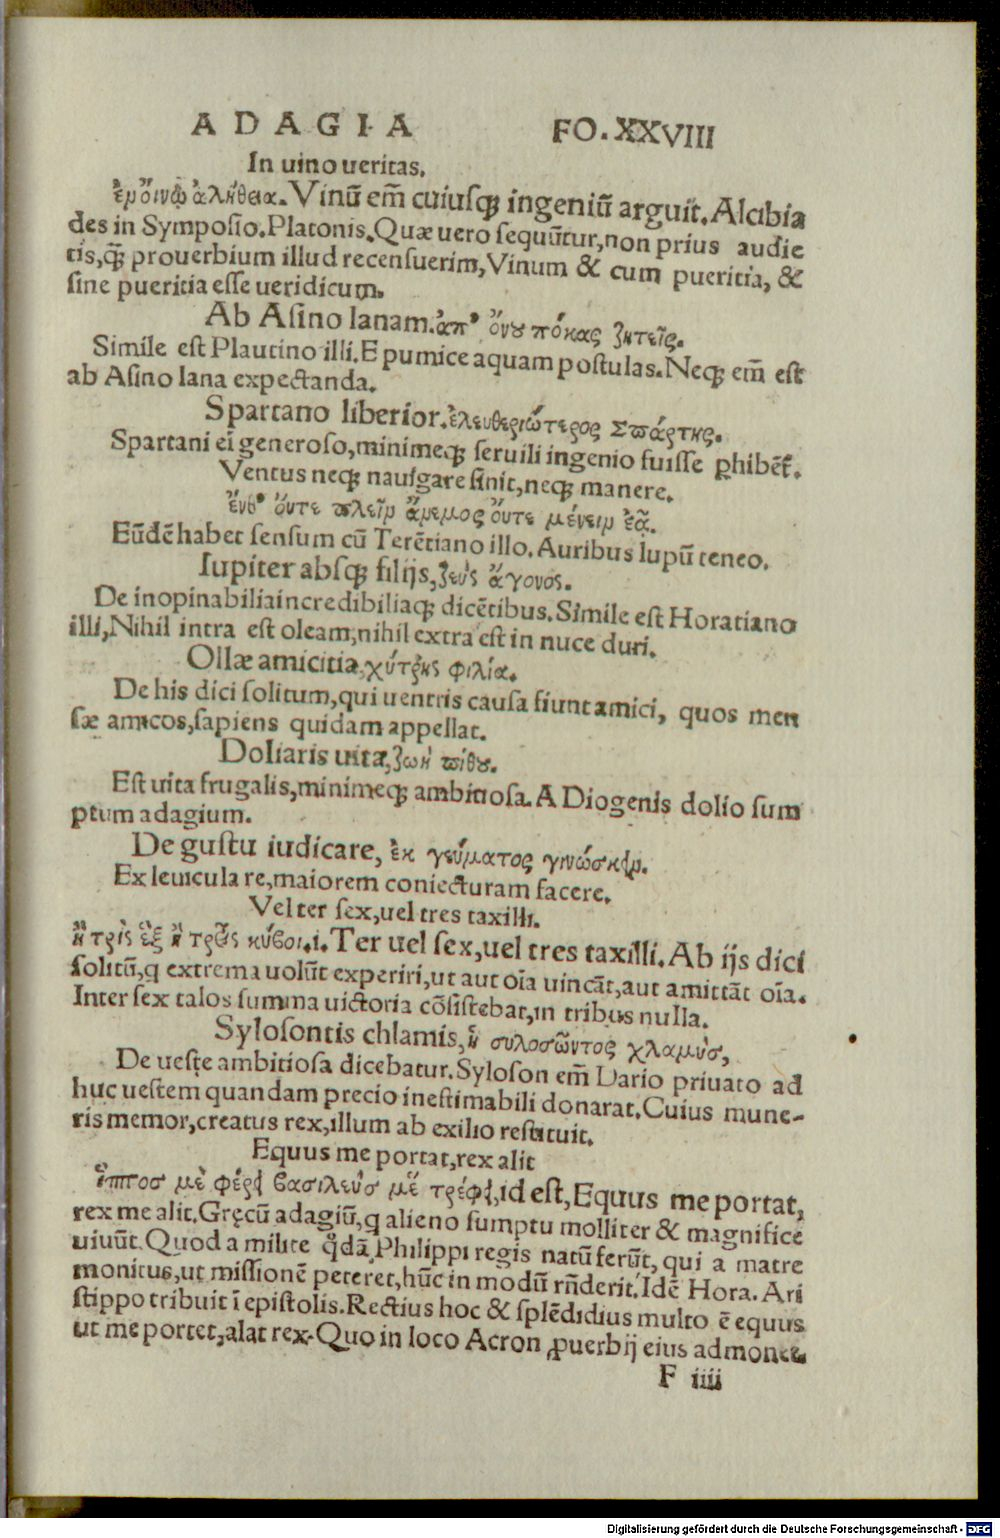 ADAGIA FO. XXVIII
In uino ueritas.
ἐμ οἴνῳ ἀλήθεια. Vinū em̄ cuiusq; ingeniū arguit. Alcibia
des in Symposio. Platonis. Quæ uero sequūtur, non prius audie
tis, q̄ prouerbium illud recensuerim, Vinum & cum pueritia, &
sine pueritia esse ueridicum.
Ab Asino lanam. ἀπ' ὄνου πόκας ζητεῖς.
Simile est Plautino illi. E pumice aquam postulas. Neq; em̄ est
ab Asino lana expectanda.
Spartano liberior. ἐλευθεριώτερος Σπάρτης.
Spartani ei generoso, minimeq; seruili ingenio fuisse ꝑhibēt.
Ventus neq; nauigare sinit, neq; manere.
οὔτε πλεῖν ἄνεμος οὔτε μένειν ἐᾷ.
Eūdē habet sensum cū Terētiano illo. Auribus lupū teneo.
Iupiter absq; filijs, ζεὺς ἄγονος.
De inopinabilia incredibiliaq; dicētibus. Simile est Horatiano
illi, Nihil intra est oleam, nihil extra est in nuce duri.
Ollæ amicitia, χύτρης φιλία.
De his dici solitum, qui uentris causa fiunt amici, quos men
sæ amicos, sapiens quidam appellat.
Doliaris uita, ζωὴ πίθου.
Est uita frugalis, minimeq; ambitiosa. A Diogenis dolio sum
ptum adagium.
De gustu iudicare, ἐκ γεύματος γινώσκειν.
Ex leuicula re, maiorem coniecturam facere.
Vel ter sex, uel tres taxilli.
ἢ τρὶς ἓξ ἢ τρεῖς κύβοι. i. Ter uel sex, uel tres taxilli. Ab ijs dici
solitū, q extrema uolūt experiri, ut aut oīa uincāt, aut amittāt oīa.
Inter sex talos summa uictoria cōsistebat, in tribus nulla.
Sylosontis chlamis, ἡ συλοσῶντος χλαμὺς,
De ueste ambitiosa dicebatur. Syloson em̄ Dario priuato ad
huc uestem quandam precio inestimabili donarat. Cuius mune-
ris memor, creatus rex, illum ab exilio restituit.
Equus me portat, rex alit
ἵππος μὲ φέρει βασιλεὺς μὲ τρέφει, id est, Equus me portat,
rex me alit. Gręcū adagiū, q alieno sumptu molliter & magnifice
uiuūt. Quod a milite q̄dā Philippi regis natū ferūt, qui a matre
monitus, ut missionē peteret, hūc in modū rn̄derit. Idē Hora. Ari
stippo tribuit ī epistolis. Rectius hoc & splēdidius multo ē equus
ut me portet, alat rex. Quo in loco Acron ꝓuerbij eius admonet.
F iiii
Digitalisierung gefördert durch die Deutsche Forschungsgemeinschaft - DFG